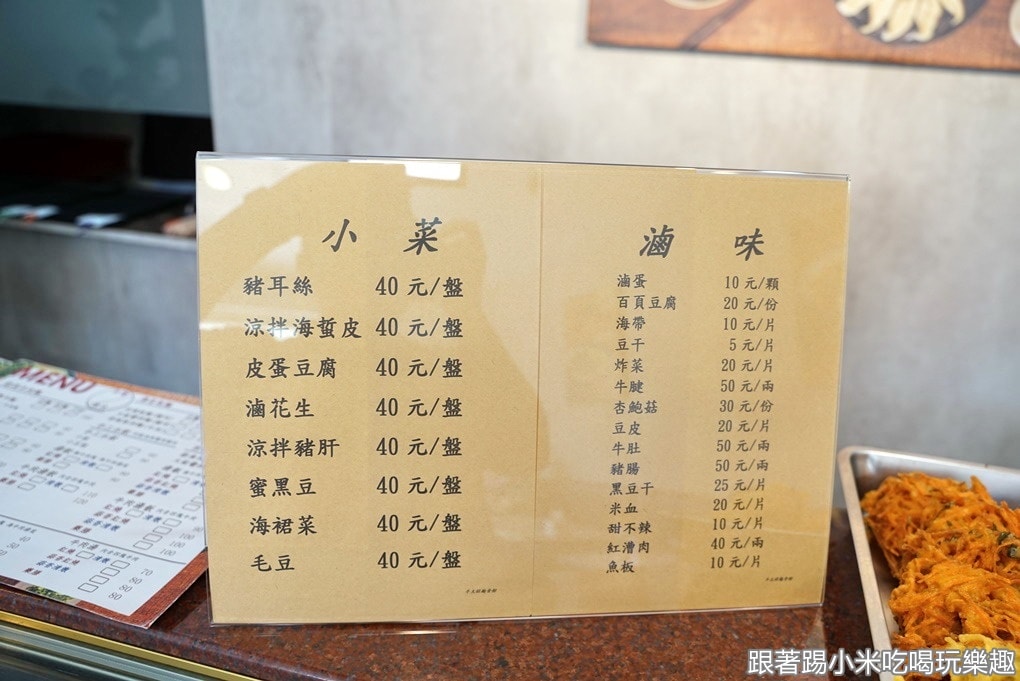 小菜
豬耳絲 40元/盤
涼拌海蜇皮 40元/盤
皮蛋豆腐 40元/盤
滷花生 40元/盤
涼拌豬肝 40元/盤
蜜黑豆 40元/盤
海裙菜 40元/盤
毛豆 40元/盤
滷味
滷蛋 10元/顆
百頁豆腐 20元/份
海帶 10元/片
豆干 5元/片
炸菜 20元/片
牛腱 50元/兩
杏鮑菇 30元/份
豆皮 20元/片
牛肚 50元/兩
豬腸 50元/兩
黑豆干 25元/片
米血 20元/片
甜不辣 10元/片
紅漕肉 40元/兩
魚板 10元/片
MENU
跟著踢小米吃喝玩樂趣